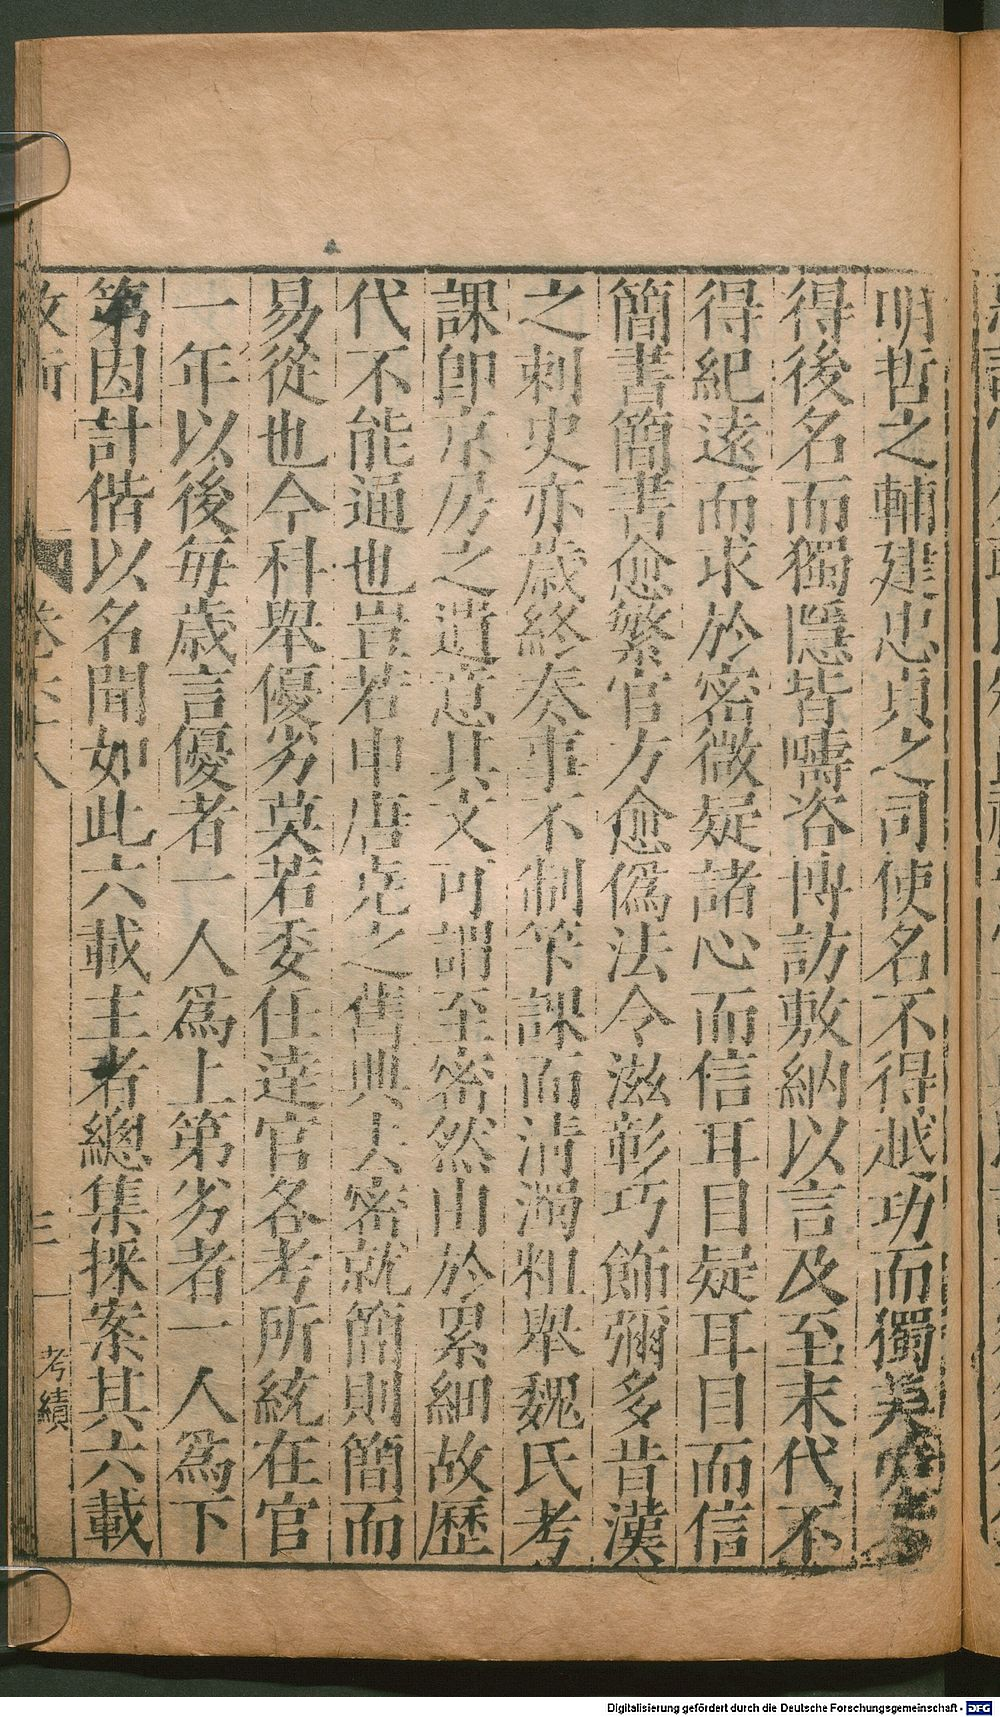 明哲之輔建忠貞之司使名不得越功而獨美
得後名而獨隱皆疇咨博訪敷納以言及至末代不
得紀遠而求於密微疑諸心而信耳目疑耳目而信
簡書簡書愈繁官方愈僞法令滋彰巧飾彌多昔漢
之刺史亦歲終奏事不制筭課而清濁粗舉魏氏考
課卽京房之遺意其文可謂至密然由於累細故歷
代不能通也豈若申唐堯之舊典去密就簡則簡而
易從也今科舉優劣莫若委任達官各考所統在官
一年以後每歲言優者一人爲上第劣者一人爲下
第因計偕以名聞如此六載主者總集採案其六載
三
考績
Digitalisierung gefördert durch die Deutsche Forschungsgemeinschaft - DFG